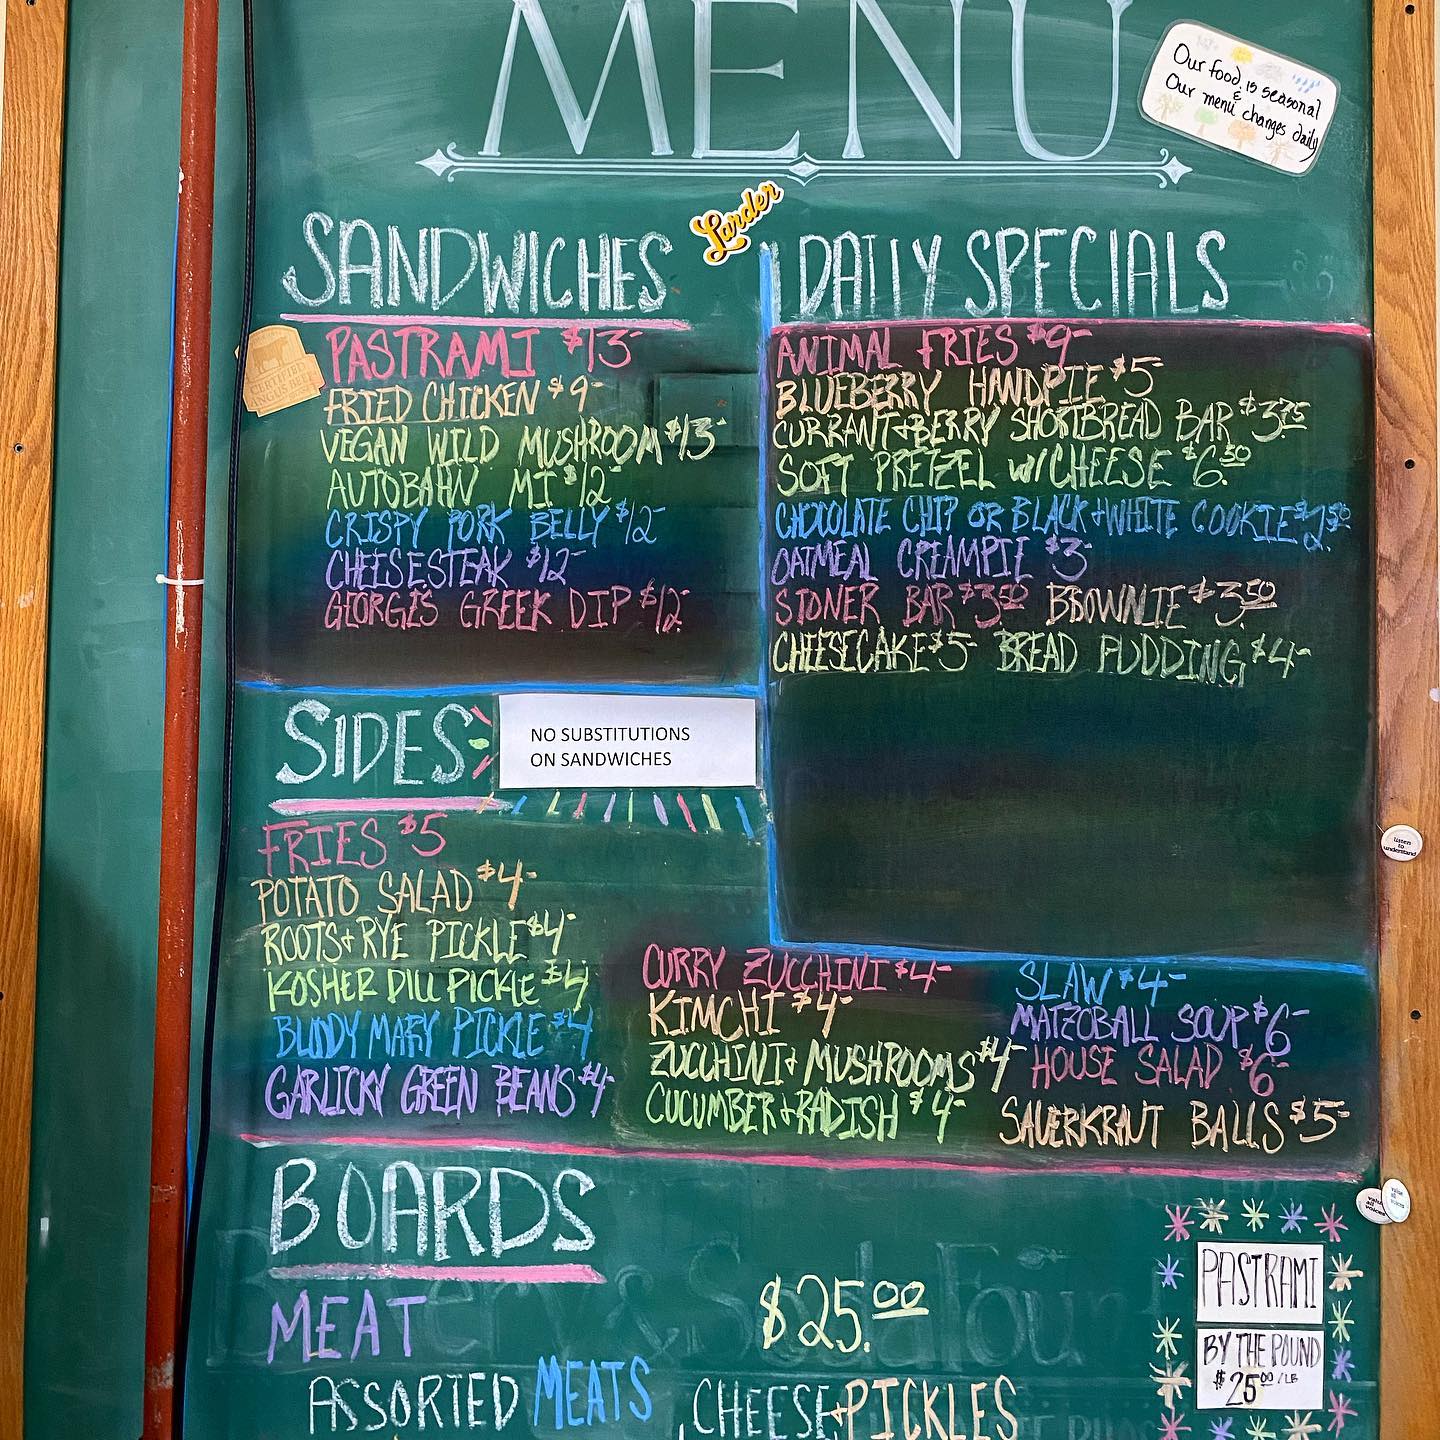 MENU
Our food is seasonal
&
Our menu changes daily
Larder
SANDWICHES
PASTRAMI $13-
FRIED CHICKEN $9-
VEGAN WILD MUSHROOM $13-
AUTOBAHN MI $12-
CRISPY PORK BELLY $12-
CHEESESTEAK $12-
GEORGIE'S GREEK DIP $12-
DAILY SPECIALS
ANIMAL FRIES $9-
BLUEBERRY HANDPIE $5-
CURRANT+BERRY SHORTBREAD BAR $3.75
SOFT PRETZEL W/CHEESE $6.50
CHOCOLATE CHIP OR BLACK+WHITE COOKIE $2.50
OATMEAL CREAMPIE $3-
STONER BAR $3.50 BROWNIE $3.50
CHEESECAKE $5- BREAD PUDDING $4-
SIDES
NO SUBSTITUTIONS
ON SANDWICHES
FRIES $5
POTATO SALAD $4-
ROOTS+RYE PICKLE $4-
KOSHER DILL PICKLE $4
BLOODY MARY PICKLE $4
GARLICKY GREEN BEANS $4-
CURRY ZUCCHINI $4-
KIMCHI $4-
ZUCCHINI+MUSHROOMS $4-
CUCUMBER+RADISH $4-
SLAW $4-
MATZOBALL SOUP $6-
HOUSE SALAD $6-
SAUERKRAUT BALLS $5-
BOARDS
MEAT $25.00
ASSORTED MEATS, CHEESE+PICKLES
PASTRAMI
BY THE POUND
$25.00/LB
listen
to
understand
value
all
voices
value
all
voices